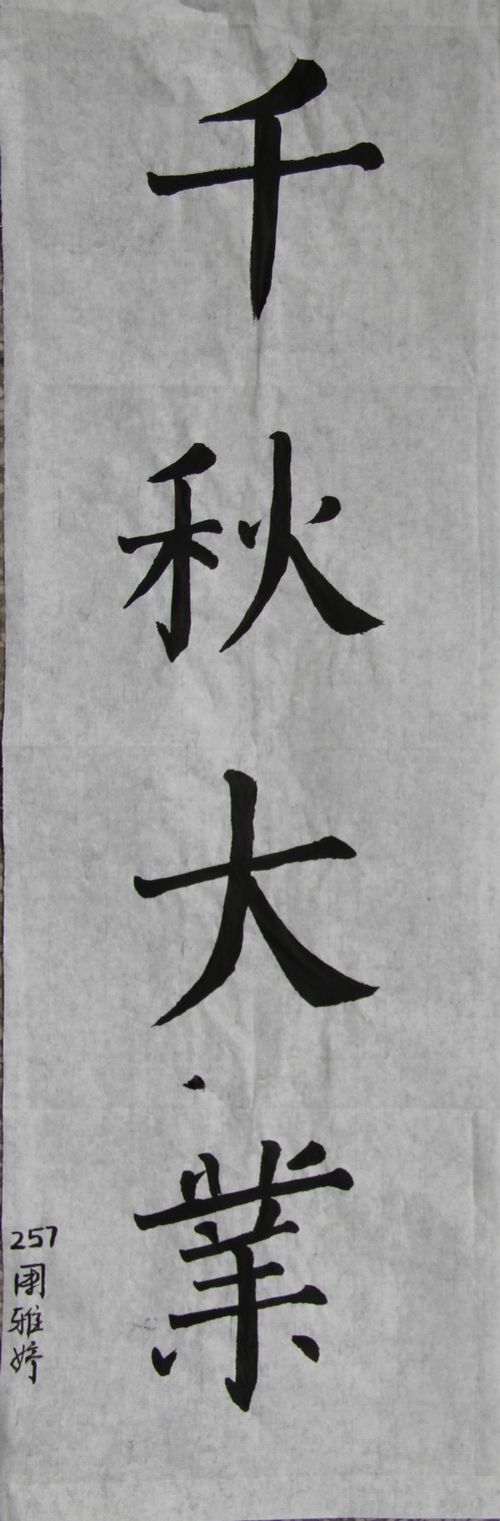 千秋大業
257
雅婷